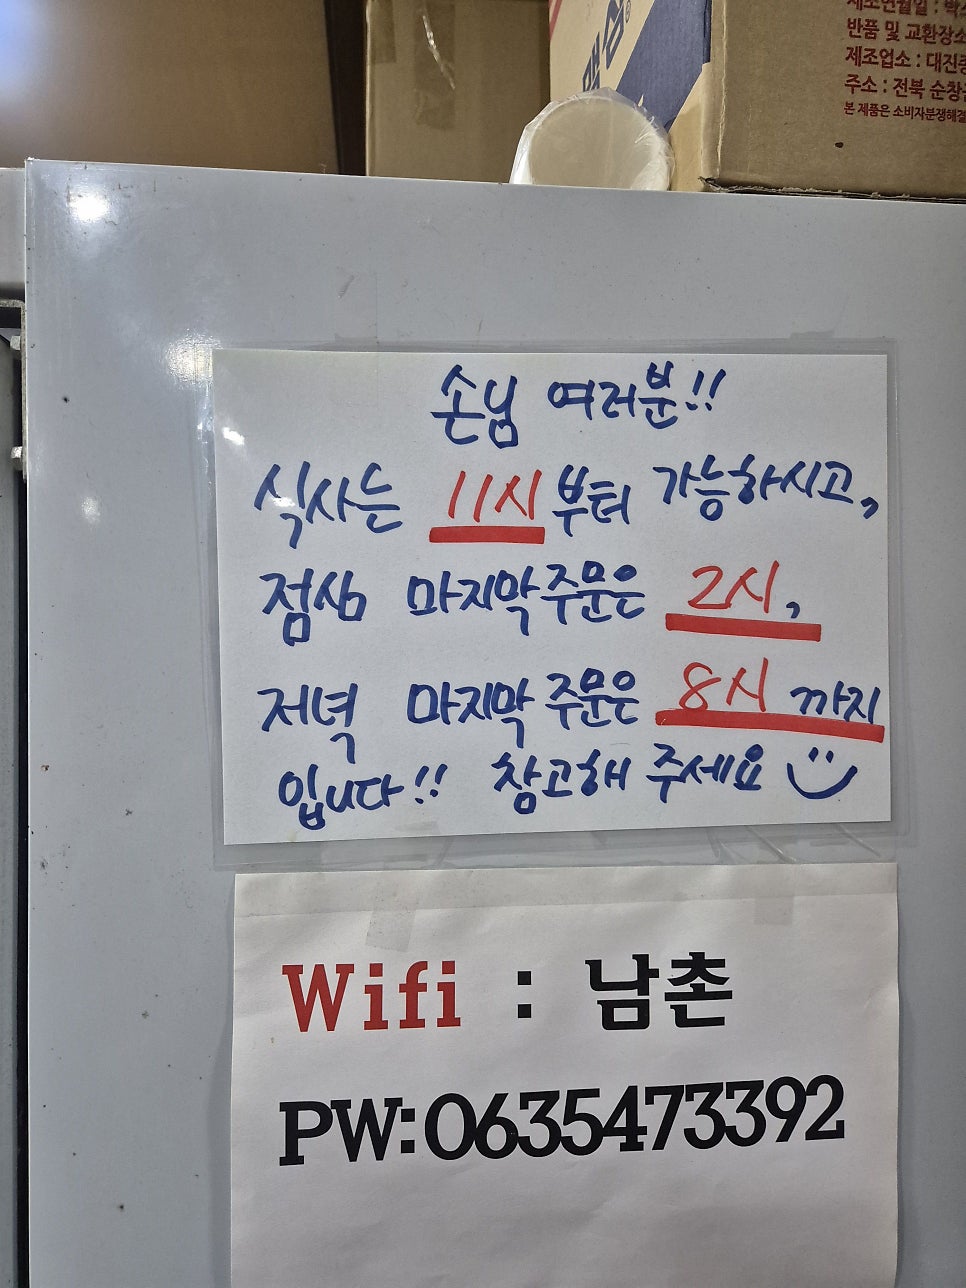 제조연월일 :
반품 및 교환장소
제조업소 : 대진
주소 : 전북 순창군
본 제품은 소비자분쟁해결
손님 여러분!!
식사는 11시부터 가능하시고,
점심 마지막 주문은 2시,
저녁 마지막 주문은 8시 까지
입니다!! 참고해 주세요
Wifi : 남촌
PW:0635473392